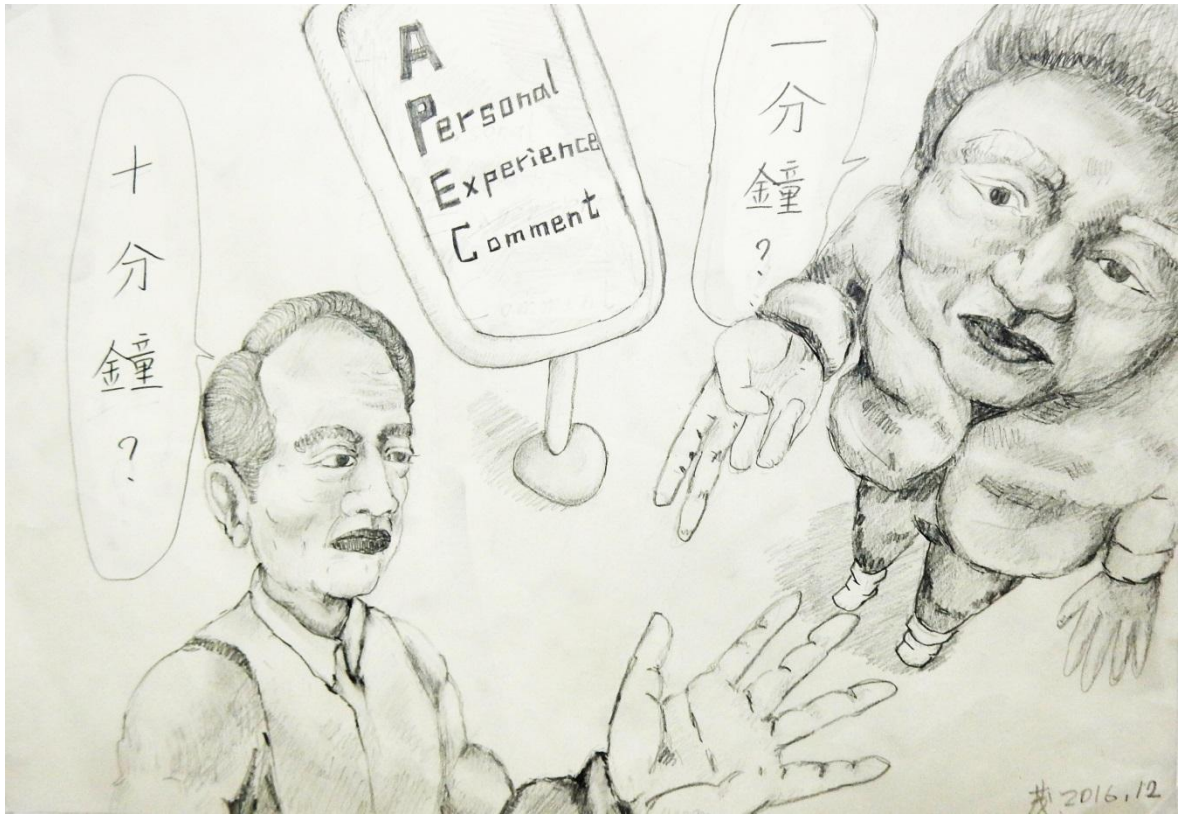 十分鐘?
A
Personal
Experience
Comment
一分鐘?
2016.12